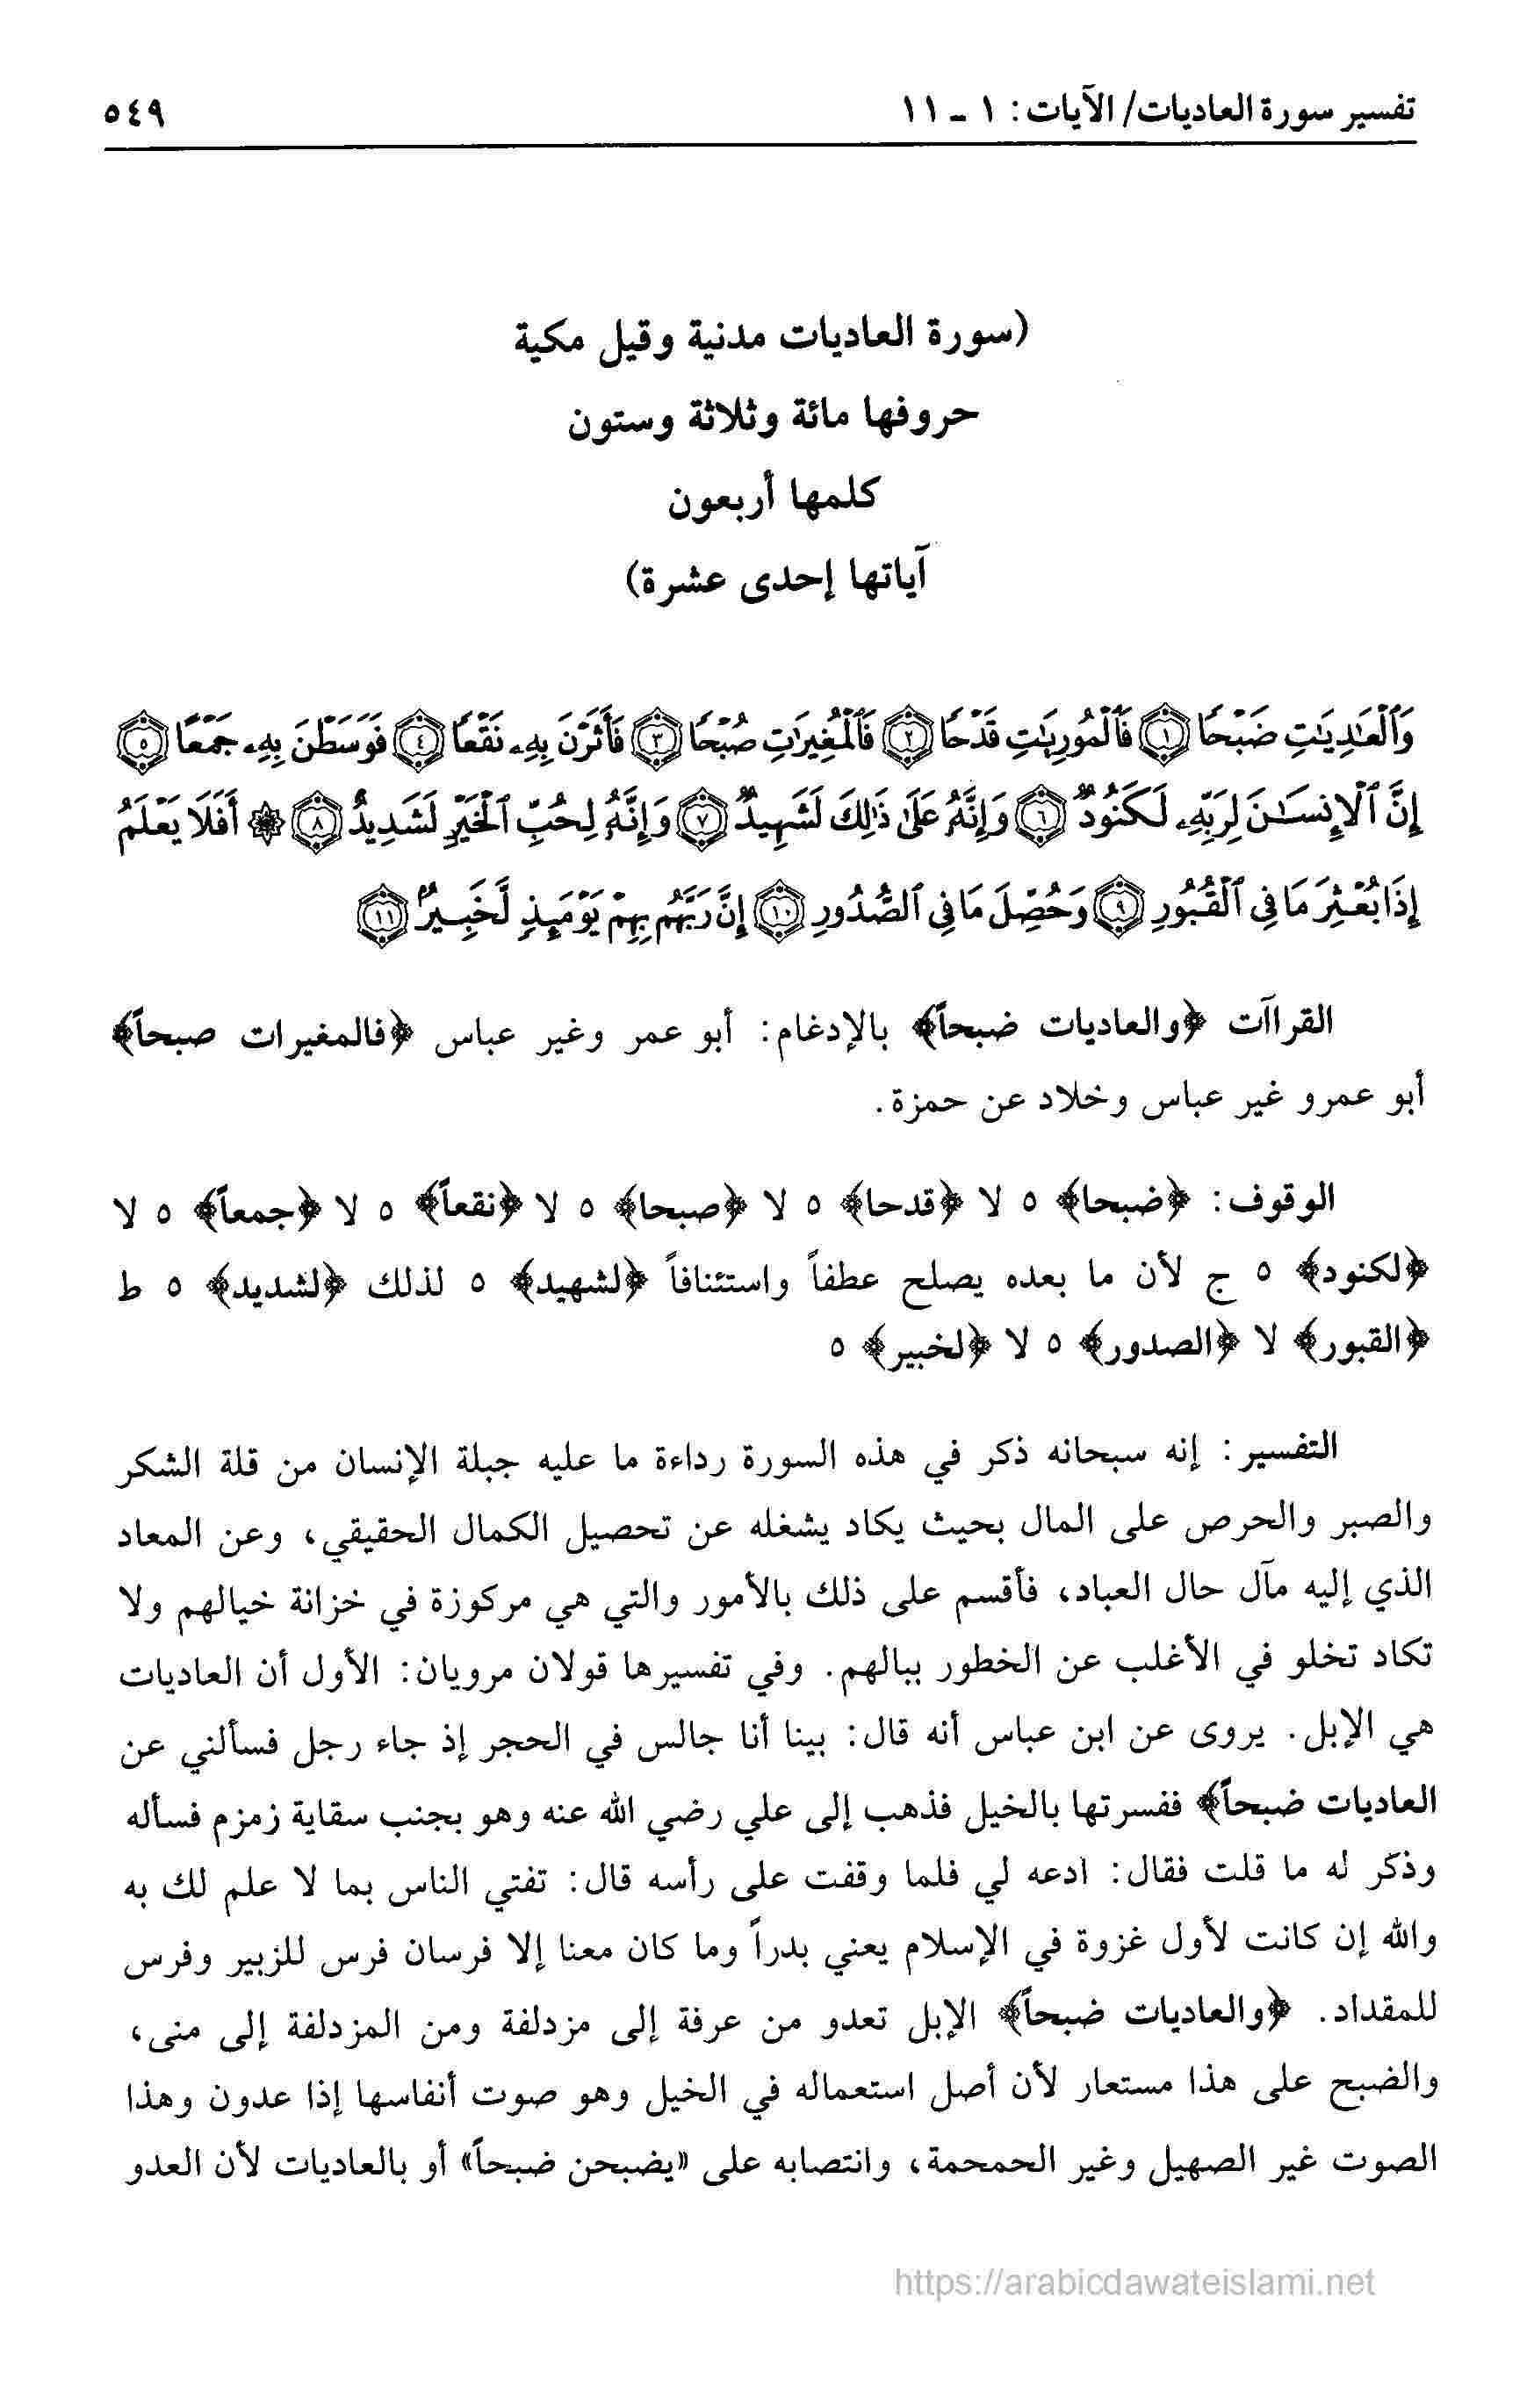 تفسير سورة العاديات/ الآيات: ١ - ١١ ٥٤٩
(سورة العاديات مدنية وقيل مكية
حروفها مائة وثلاثة وستون
كلمها أربعون
آياتها إحدى عشرة)
وَٱلْعَٰدِيَٰتِ ضَبْحًا ١ فَٱلْمُورِيَٰتِ قَدْحًا ٢ فَٱلْمُغِيرَٰتِ صُبْحًا ٣ فَأَثَرْنَ بِهِۦ نَقْعًا ٤ فَوَسَطْنَ بِهِۦ جَمْعًا ٥
إِنَّ ٱلْإِنسَٰنَ لِرَبِّهِۦ لَكَنُودٌ ٦ وَإِنَّهُۥ عَلَىٰ ذَٰلِكَ لَشَهِيدٌ ٧ وَإِنَّهُۥ لِحُبِّ ٱلْخَيْرِ لَشَدِيدٌ ٨ ۞ أَفَلَا يَعْلَمُ
إِذَا بُعْثِرَ مَا فِى ٱلْقُبُورِ ٩ وَحُصِّلَ مَا فِى ٱلصُّدُورِ ١٠ إِنَّ رَبَّهُم بِهِمْ يَوْمَئِذٍ لَّخَبِيرٌۢ ١١
القراآت ﴿والعاديات ضبحاً﴾ بالإدغام: أبو عمر وغير عباس ﴿فالمغيرات صبحاً﴾
أبو عمرو غير عباس وخلاد عن حمزة.
الوقوف: ﴿ضبحا﴾ ٥ لا ﴿قدحا﴾ ٥ لا ﴿صبحا﴾ ٥ لا ﴿نقعاً﴾ ٥ لا ﴿جمعاً﴾ ٥ لا
﴿لكنود﴾ ٥ ج لأن ما بعده يصلح عطفاً واستئنافاً ﴿لشهيد﴾ ٥ لذلك ﴿لشديد﴾ ٥ ط
﴿القبور﴾ لا ﴿الصدور﴾ ٥ لا ﴿لخبير﴾ ٥
التفسير: إنه سبحانه ذكر في هذه السورة رداءة ما عليه جبلة الإنسان من قلة الشكر
والصبر والحرص على المال بحيث يكاد يشغله عن تحصيل الكمال الحقيقي، وعن المعاد
الذي إليه مآل حال العباد، فأقسم على ذلك بالأمور والتي هي مركوزة في خزانة خيالهم ولا
تكاد تخلو في الأغلب عن الخطور ببالهم. وفي تفسيرها قولان مرويان: الأول أن العاديات
هي الإبل. يروى عن ابن عباس أنه قال: بينا أنا جالس في الحجر إذ جاء رجل فسألني عن
العاديات ضبحاً﴾ ففسرتها بالخيل فذهب إلى علي رضي الله عنه وهو بجنب سقاية زمزم فسأله
وذكر له ما قلت فقال: ادعه لي فلما وقفت على رأسه قال: تفتي الناس بما لا علم لك به
والله إن كانت لأول غزوة في الإسلام يعني بدراً وما كان معنا إلا فرسان فرس للزبير وفرس
للمقداد. ﴿والعاديات ضبحاً﴾ الإبل تعدو من عرفة إلى مزدلفة ومن المزدلفة إلى منى،
والضبح على هذا مستعار لأن أصل استعماله في الخيل وهو صوت أنفاسها إذا عدون وهذا
الصوت غير الصهيل وغير الحمحمة، وانتصابه على «يضبحن ضبحاً» أو بالعاديات لأن العدو
https://arabicdawateislami.net